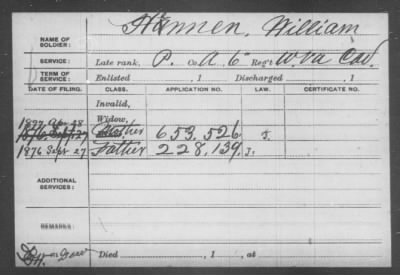 NAME OF SOLDIER: Hannen, William
SERVICE: Late rank, P. Co. A, 6" Reg't W. Va Cav.
TERM OF SERVICE: Enlisted , 1 Discharged , 1
DATE OF FILING. CLASS. APPLICATION NO. LAW. CERTIFICATE NO.
Invalid,
Widow,
1897 Apr. 28
1876 Sept. 27 Mother 653,526
1876 Sept 27 Father 228,139 J.
ADDITIONAL SERVICES:
REMARKS:
Died , 1 , at